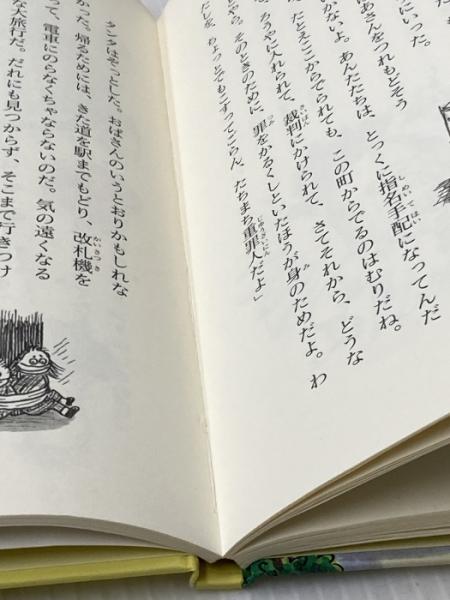 にいった。
ばあさんをつれもどそう
がないよ。あんたたちは、とっくに指名手配になってんだ
たとえここからでられても、この町からでるのはむりだね。
ろうやに入れられて、裁判にかけられて、さてそれから、どうな
やら。そのときのために、罪をかるくしといたほうが身のためだよ。わ
たしを、ちょっとでもこすってごらん、たちまち重罪人だよ」
タンタはぞっとした。おばさんのいうとおりかもしれな
かった。帰るためには、きた道を駅までもどり、改札機を
って、電車にのらなくちゃならないのだ。気の遠くなる
な大旅行だ。だれにも見つからず、そこまで行きつけ